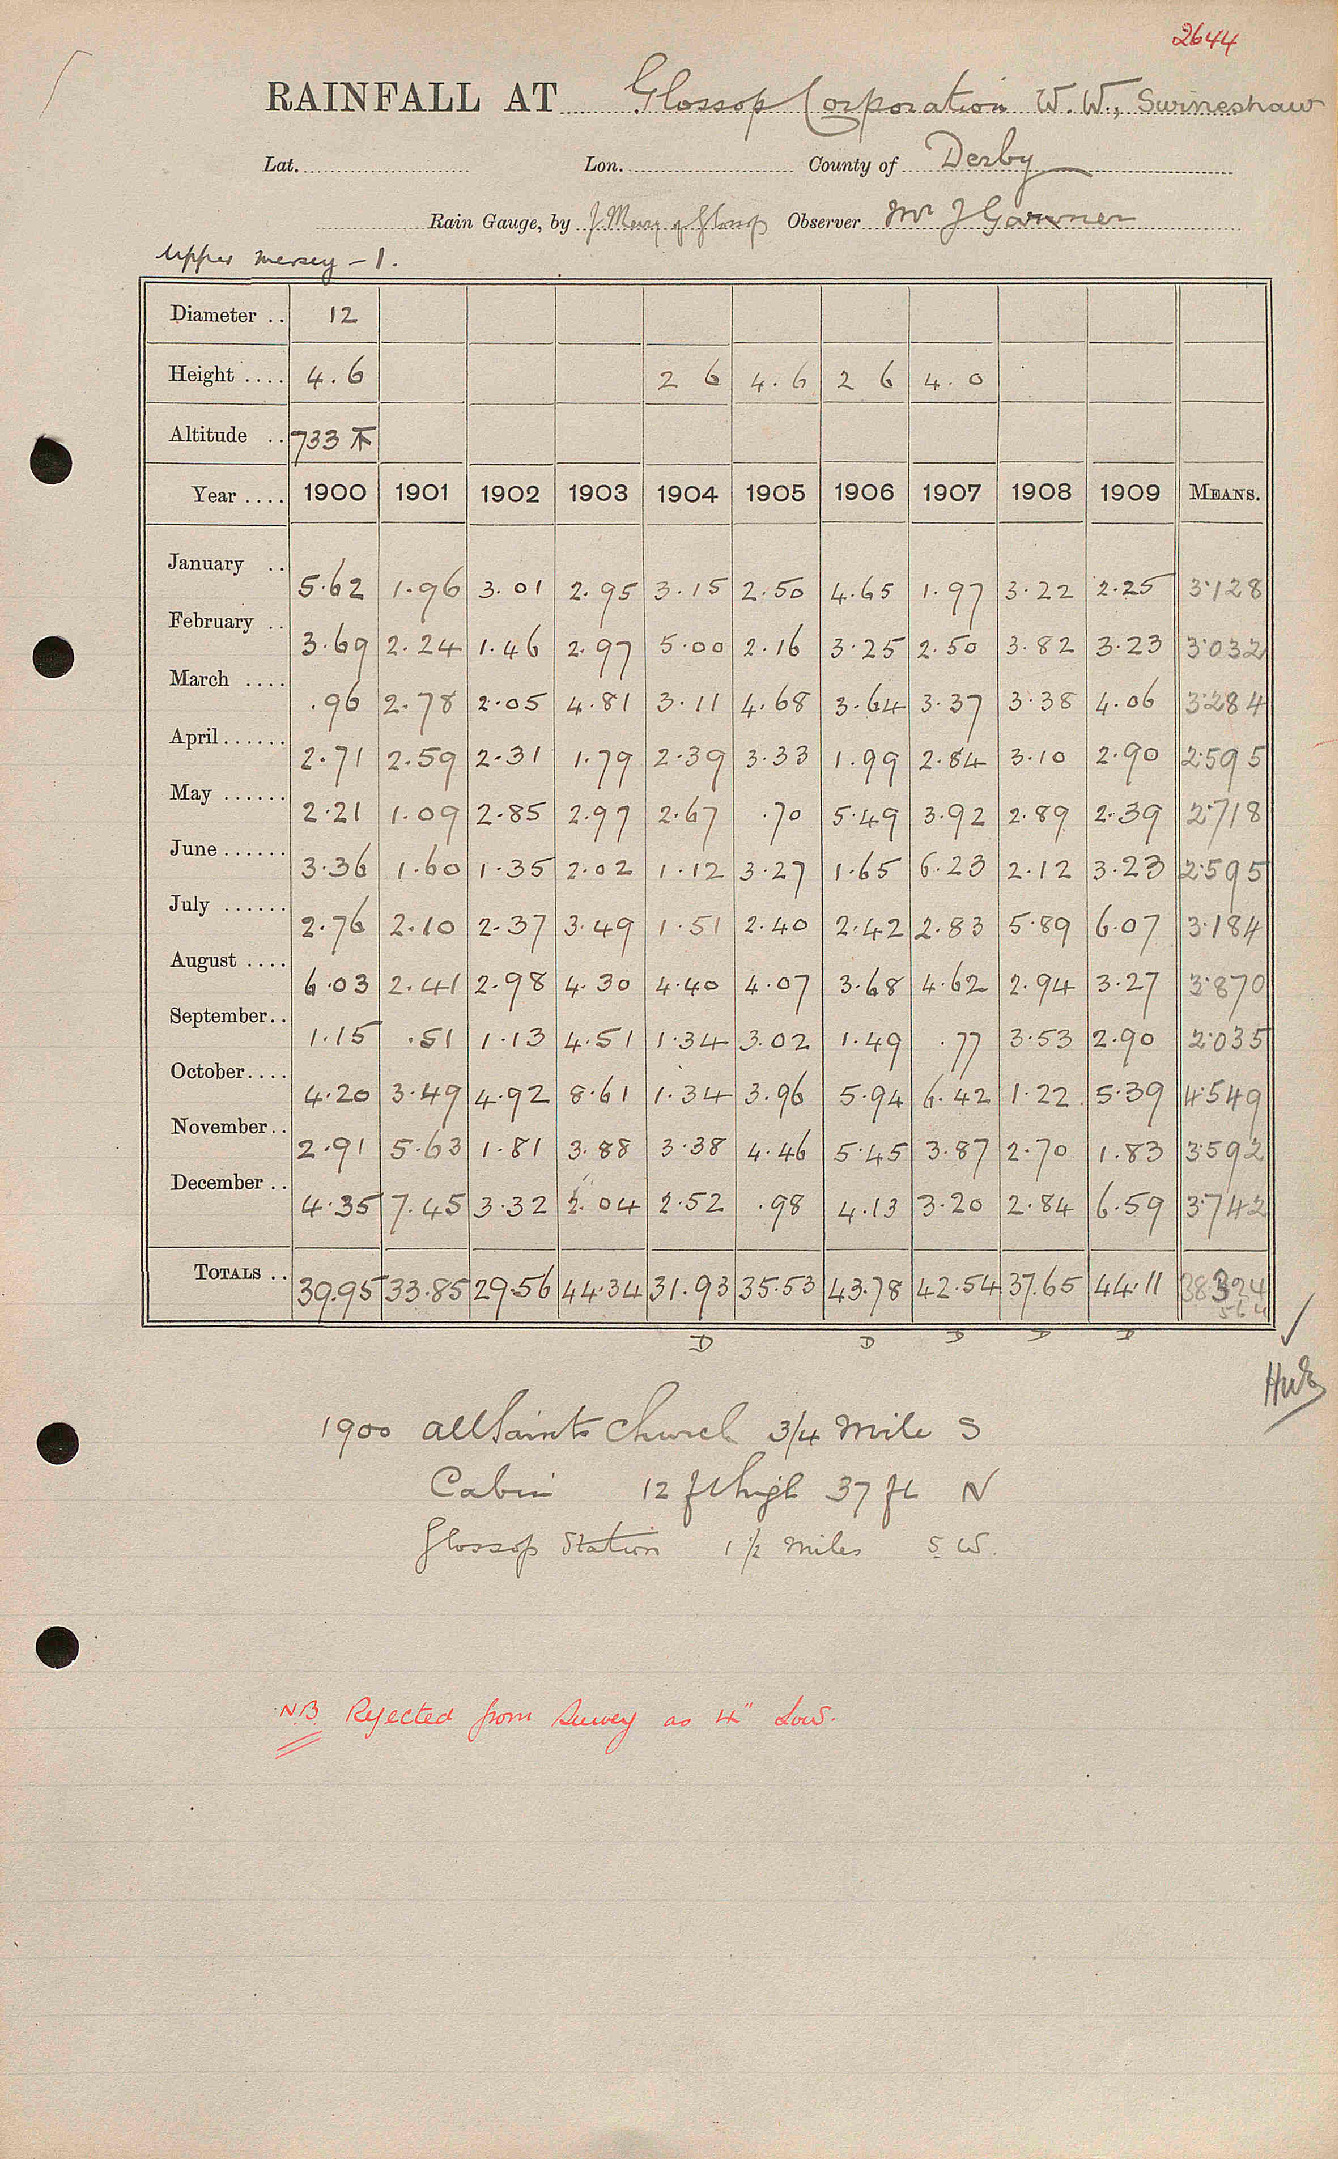 2644
RAINFALL AT Glossop Corporation W.W., Swineshaw
Lat. Lon. County of Derby
Rain Gauge, by J. Merry of Glossop Observer Mr J Garner
Upper Mersey - 1.
Diameter .. 12
Height .... 4.6 2 6 4.6 2 6 4.0
Altitude .. 733
Year .... 1900 1901 1902 1903 1904 1905 1906 1907 1908 1909 MEANS.
January .. 5.62 1.96 3.01 2.95 3.15 2.50 4.65 1.97 3.22 2.25 3.128
February .. 3.69 2.24 1.46 2.97 5.00 2.16 3.25 2.50 3.82 3.23 3.032
March .... .96 2.78 2.05 4.81 3.11 4.68 3.64 3.37 3.38 4.06 3.284
April ...... 2.71 2.59 2.31 1.79 2.39 3.33 1.99 2.84 3.10 2.90 2.595
May ...... 2.21 1.09 2.85 2.97 2.67 .70 5.49 3.92 2.89 2.39 2.718
June ...... 3.36 1.60 1.35 2.02 1.12 3.27 1.65 6.23 2.12 3.23 2.595
July ...... 2.76 2.10 2.37 3.49 1.51 2.40 2.42 2.83 5.89 6.07 3.184
August .... 6.03 2.41 2.98 4.30 4.40 4.07 3.68 4.62 2.94 3.27 3.870
September.. 1.15 .51 1.13 4.51 1.34 3.02 1.49 .77 3.53 2.90 2.035
October.... 4.20 3.49 4.92 8.61 1.34 3.96 5.94 6.42 1.22 5.39 4.549
November.. 2.91 5.63 1.81 3.88 3.38 4.46 5.45 3.87 2.70 1.83 3.592
December .. 4.35 7.45 3.32 2.04 2.52 .98 4.13 3.20 2.84 6.59 3.742
TOTALS .. 39.95 33.85 29.56 44.34 31.93 35.53 43.78 42.54 37.65 44.11 38.324
D D D D D
1900 All Saints Church 3/4 Mile S
Cabin 12 ft high 37 ft N
Glossop Station 1 1/2 miles S.W.
NB Rejected from Survey as 4" Low.